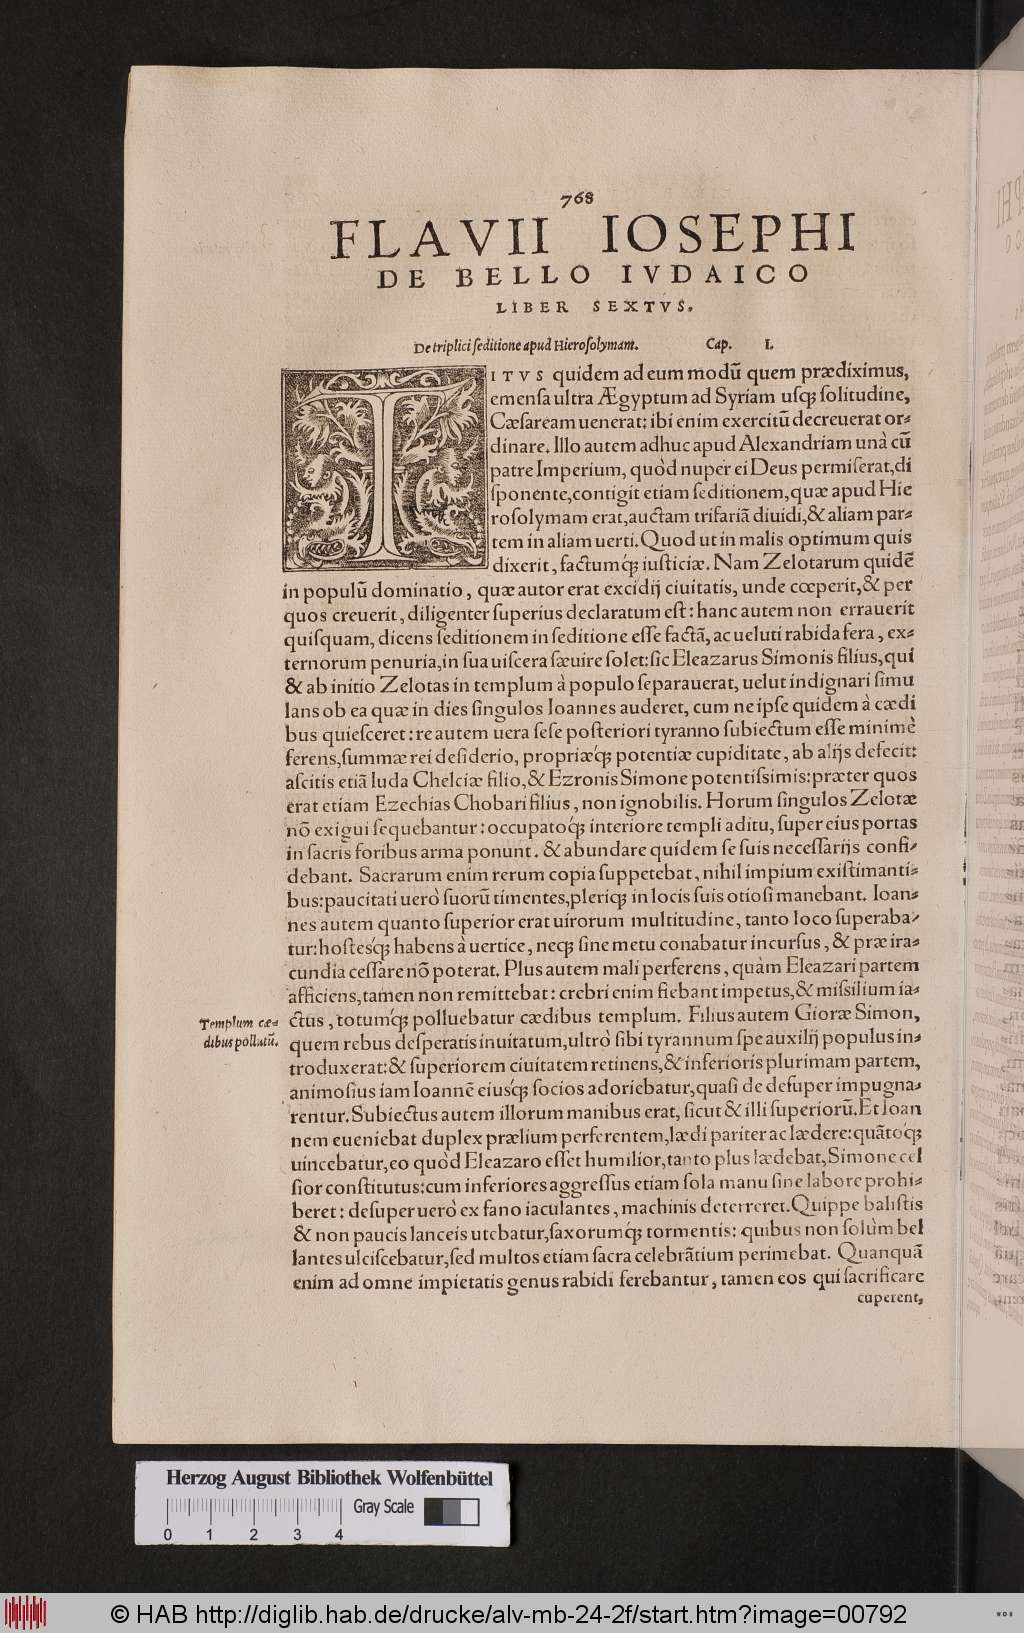 768
FLAVII IOSEPHI
DE BELLO IVDAICO
LIBER SEXTVS.
De triplici ſeditione apud Hieroſolymam. Cap. I.
TITVS quidem ad eum modū quem prædiximus,
emenſa ultra Ægyptum ad Syriam uſq́ꝫ ſolitudine,
Cæſaream uenerat: ibi enim exercitū decreuerat or⸗
dinare. Illo autem adhuc apud Alexandriam unà cū
patre Imperium, quòd nuper ei Deus permiſerat, di
ſponente, contigit etiam ſeditionem, quæ apud Hie
roſolymam erat, auctam trifariā diuidi, & aliam par⸗
tem in aliam uerti. Quod ut in malis optimum quis
dixerit, factumq́ꝫ iuſticiæ. Nam Zelotarum quidē
in populū dominatio, quæ autor erat excidij ciuitatis, unde cœperit, & per
quos creuerit, diligenter ſuperius declaratum eſt: hanc autem non errauerit
quiſquam, dicens ſeditionem in ſeditione eſſe factā, ac ueluti rabida fera, ex⸗
ternorum penuria, in ſua uiſcera ſæuire ſolet: ſic Eleazarus Simonis filius, qui
& ab initio Zelotas in templum à populo ſeparauerat, uelut indignari ſimu
lans ob ea quæ in dies ſingulos Ioannes auderet, cum ne ipſe quidem à cædi
bus quieſceret: re autem uera ſeſe poſteriori tyranno ſubiectum eſſe minimè
ferens, ſummæ rei deſiderio, propriæq́ꝫ potentiæ cupiditate, ab alijs defecit:
aſcitis etiā Iuda Chelciæ filio, & Ezronis Simone potentiſsimis: præter quos
erat etiam Ezechias Chobari filius, non ignobilis. Horum ſingulos Zelotæ
nō exigui ſequebantur: occupatoq́ꝫ interiore templi aditu, ſuper eius portas
in ſacris foribus arma ponunt. & abundare quidem ſe ſuis neceſſarijs confi⸗
debant. Sacrarum enim rerum copia ſuppetebat, nihil impium exiſtimanti⸗
bus: paucitati uerò ſuorū timentes, pleriqꝫ in locis ſuis otioſi manebant. Ioan⸗
nes autem quanto ſuperior erat uirorum multitudine, tanto loco ſuperaba⸗
tur: hoſtesq́ꝫ habens à uertice, neqꝫ ſine metu conabatur incurſus, & præ ira⸗
cundia ceſſare nō poterat. Plus autem mali perferens, quàm Eleazari partem
afficiens, tamen non remittebat: crebri enim fiebant impetus, & miſsilium ia⸗
ctus, totumq́ꝫ polluebatur cædibus templum. Filius autem Gioræ Simon,
Templum cæ⸗
dibus pollutū.
quem rebus deſperatis inuitatum, ultrò ſibi tyrannum ſpe auxilij populus in⸗
troduxerat: & ſuperiorem ciuitatem retinens, & inferioris plurimam partem,
animoſius iam Ioannē eiusq́ꝫ ſocios adoriebatur, quaſi de deſuper impugna⸗
rentur. Subiectus autem illorum manibus erat, ſicut & illi ſuperiorū. Et Ioan
nem eueniebat duplex prælium perferentem, lædi pariter ac lædere: quātoq́ꝫ
uincebatur, eo quòd Eleazaro eſſet humilior, tanto plus lædebat, Simone cel
ſior conſtitutus: cum inferiores aggreſſus etiam ſola manu ſine labore prohi⸗
beret: deſuper uerò ex fano iaculantes, machinis deterreret. Quippe baliſtis
& non paucis lanceis utebatur, ſaxorumq́ꝫ tormentis: quibus non ſolùm bel
lantes ulciſcebatur, ſed multos etiam ſacra celebrātium perimebat. Quanquā
enim ad omne impietatis genus rabidi ferebantur, tamen eos qui ſacrificare
cuperent,
Herzog August Bibliothek Wolfenbüttel
Gray Scale
0 1 2 3 4
© HAB http://diglib.hab.de/drucke/alv-mb-24-2f/start.htm?image=00792